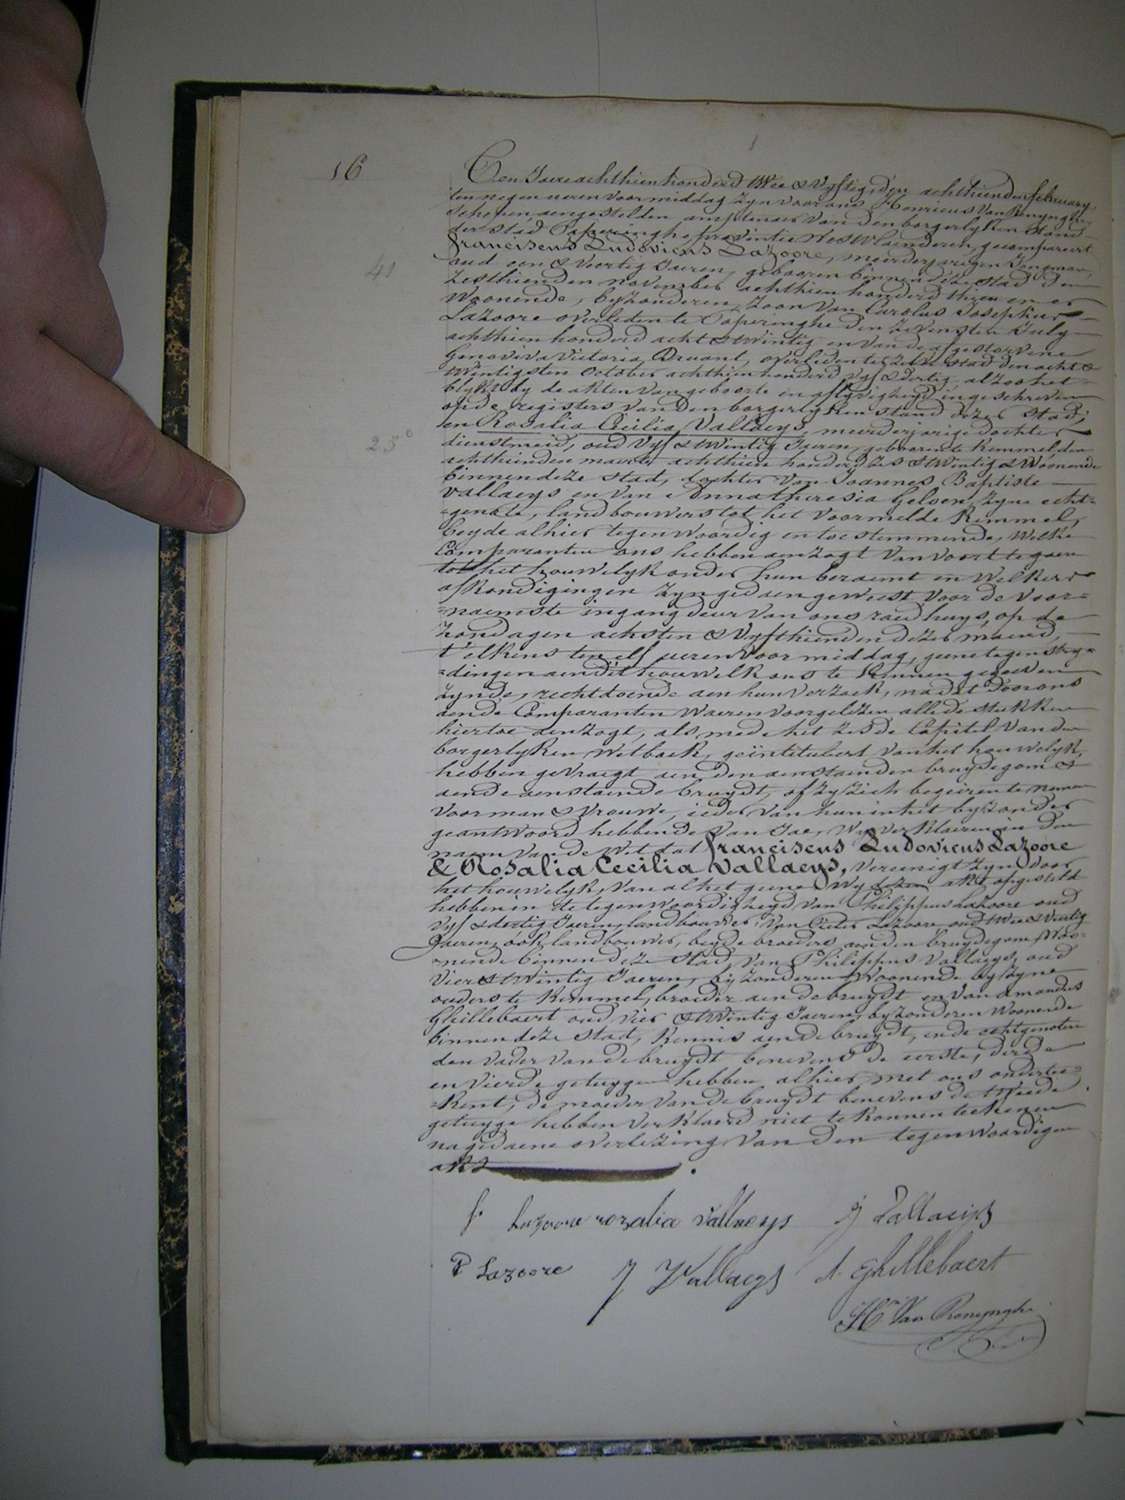 16
Den Jaere achthien honderd twee & Vyftig, den achtienden february
ten negen ueren voormiddag zyn voor ons Henricus Van Renynghe
Schepen, aengestelden amptenaer van den borgerlyken stand
der stad Poperinghe provintie West Vlaenderen, gecompareert
franciscus Ludovicus Lazoore, meerderjarigen jongman,
41
oud een & Veertig Jaeren, geboren binnen deze stad den
zesthienden november achthien honderd thien en er
Woonende, byzonderen, zoon van Carolus Josephus
Lazoore overleden te Poperinghe den zevensten July
achthien honderd acht & twintig en van de afgestorvene
Genoveva Victoria Druant, overleden te deze stad den acht &
twintigsten october achthien honderd vyf & dertig, alzoo het
blykt by de akten van geboorte en aflyvigheyd ingeschreven
op de registers van den borgerlyken stand dezer stad;
25
en Rosalia Cecilia Vallaeys, meerderjarige dochter
dienstmeid, oud vyf & twintig Jaeren, geboren te Kemmel den
achthienden maert achthien honderd zes & twintig & Woonende
binnen deze stad, dochter van Joannes Baptiste
Vallaeys en van Anna Theresia Geloen, zyne echt-
-genote, landbouwers tot het voormelde Kemmel,
beyde alhier tegenwoordig en toestemmende, Welke
Comparanten ons hebben aenzogt van voort te gaen
tot het houwelyk onder hun beraemt en Welkers
afkondigingen zyn gedaen geweest voor de voor-
-naemste ingang deur van ons raedhuys, op de
zondagen achsten & vyfthienden dezer maend,
t'elkens ten elf ueren voormiddag, geene tegenstry-
-dingen aen dit houwelyk ons te kennen gegeven
zynde, rechtdoende aen hun verzoek, na dat door ons
aen de Comparanten waeren voorgelezen alle de stukken
hiertoe aenzogt, als mede het zesde Capitel van den
borgerlyken Wetboek, geïntituleert van het houwelyk,
hebben gevraegt aen den aenstaenden bruydegom &
aen de aenstaende bruydt, of zy zich begeiren te nemen
voor man & Vrouwe, ieder van hun in het byzonder
geantwoord hebbende van Jae, Wy verklaeren in den
naem van de Wet dat franciscus Ludovicus Lazoore
& Rosalia Cecilia Vallaeys, vereenigt zyn door
het houwelyk, van al het geene Wy akt opgesteld
hebben in te tegenwoordigheyd van Philippus Lazoore oud
vyf & dertig Jaeren, landbouwer, van Pieter Lazoore oud twee & veertig
Jaeren, ook landbouwer, beyde broeders aen den bruydegom Woo-
-nende binnen deze stad, van Philippus Vallaeys, oud
vier & twintig Jaeren, byzonderen Woonende by zyne
ouders te Kemmel, broeder aen de bruydt en van Amandus
Ghillebaert oud vier & twintig Jaeren, byzonderen Woonende
binnen deze stad, kennis aen de bruydt, en de echtgenoten
den vader van de bruydt benevens de eerste, derde
en vierde getuygen hebben alhier met ons ondertee-
-kent, de moeder van de bruydt benevens de tweede
getuyge hebben verklaerd niet te konnen teekenen
na gedaene overlezing van den tegenwoordigen
akt.
f. Lazoore rozalia Vallaeys J Vallaeys
P Lazoore J Vallaeys A. Ghillebaert
Hri Van Renynghe